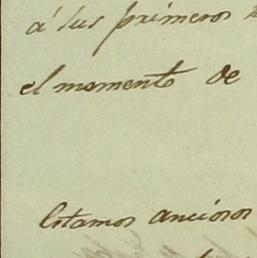 á sus primeros
el momento de
Estamos anciosos